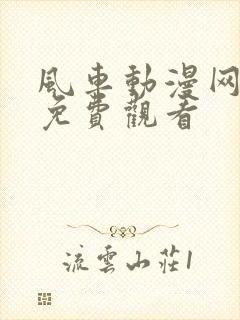 風車動漫网
免費觀看
流雲山莊1